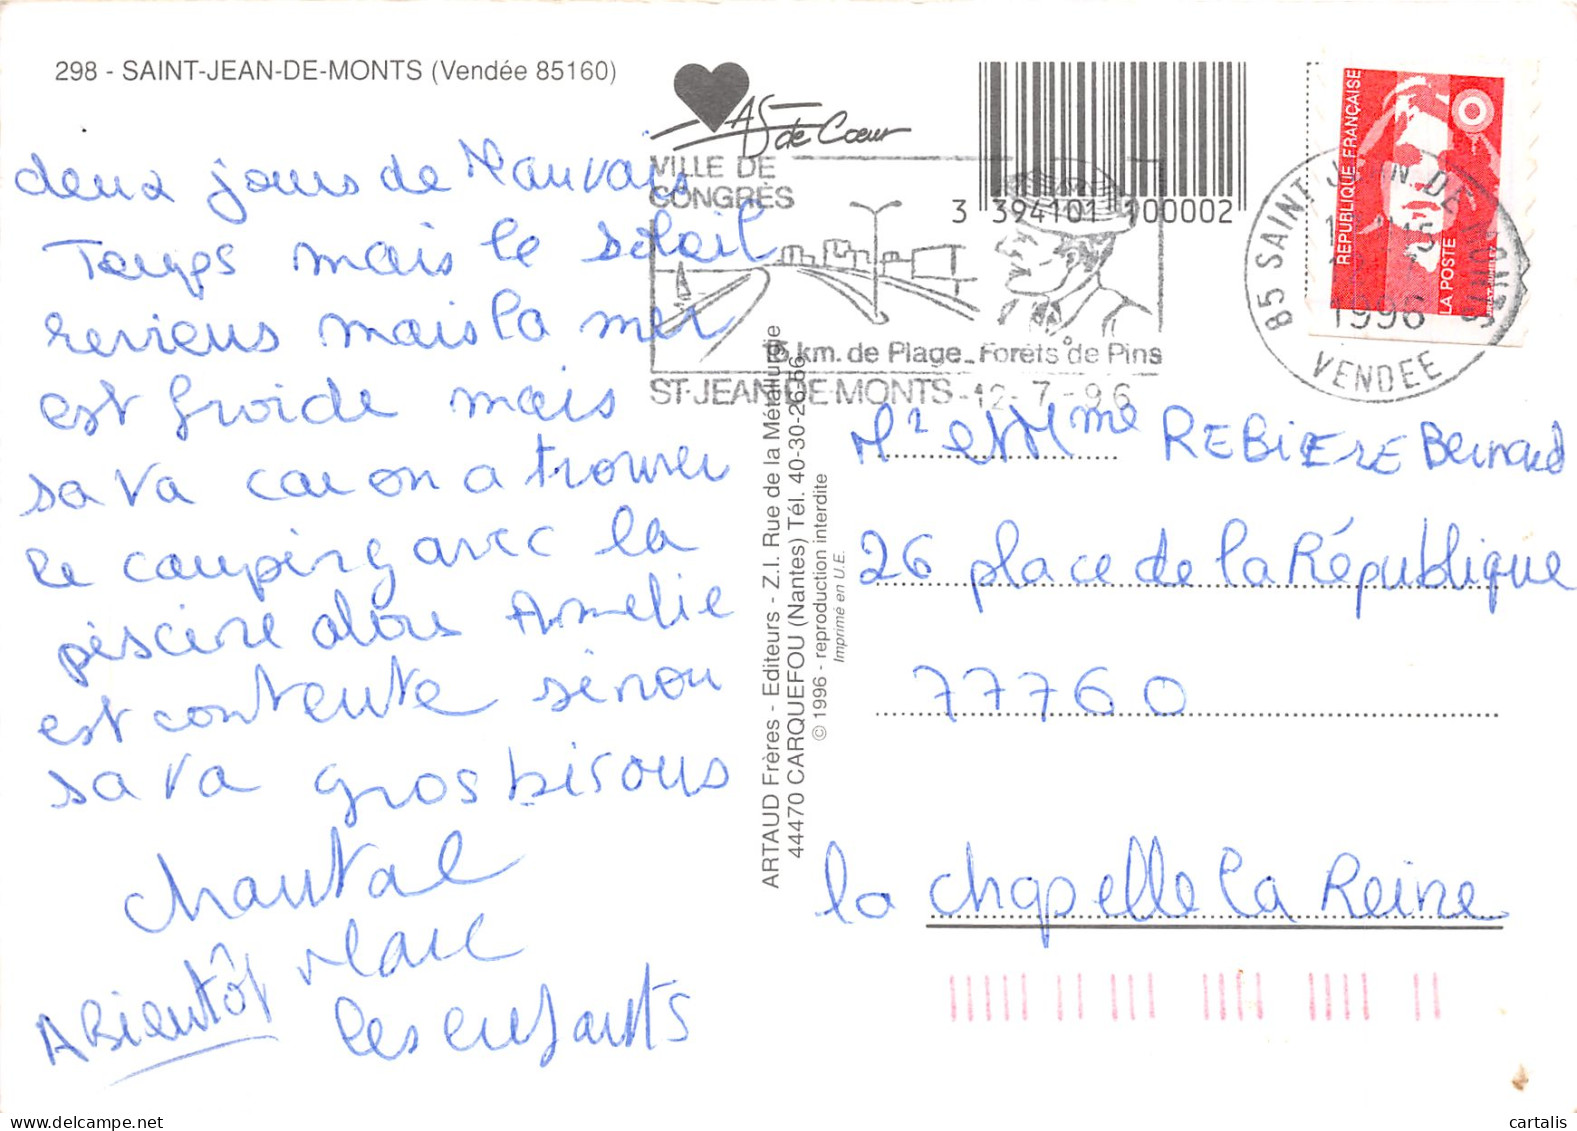 298 - SAINT-JEAN-DE-MONTS (Vendée 85160)
deux jours de Mauvais
Temps mais le soleil
reviens mais la mer
est froide mais
sa va car on a trouver
le camping avec la
piscine alors Amelie
est contente sinon
sa va gros bisous
chantal
Marc
les enfants
A Bientôt
AS de Cœur
VILLE DE
CONGRÈS
15 km. de Plage - Forêts de Pins
ST-JEAN-DE-MONTS -12-7-96
3 394101 100002
85 SAINT JEAN DE MONTS
1996
VENDEE
REPUBLIQUE FRANÇAISE
LA POSTE
ARTAUD Frères - Editeurs - Z.I. Rue de la Métallurgie
44470 CARQUEFOU (Nantes) Tél. 40-30-26-66
© 1996 - reproduction interdite
Imprimé en U.E.
Mr et Mme REBIERE Bernard
26 place de la République
77760
la chapelle la Reine
cartalis